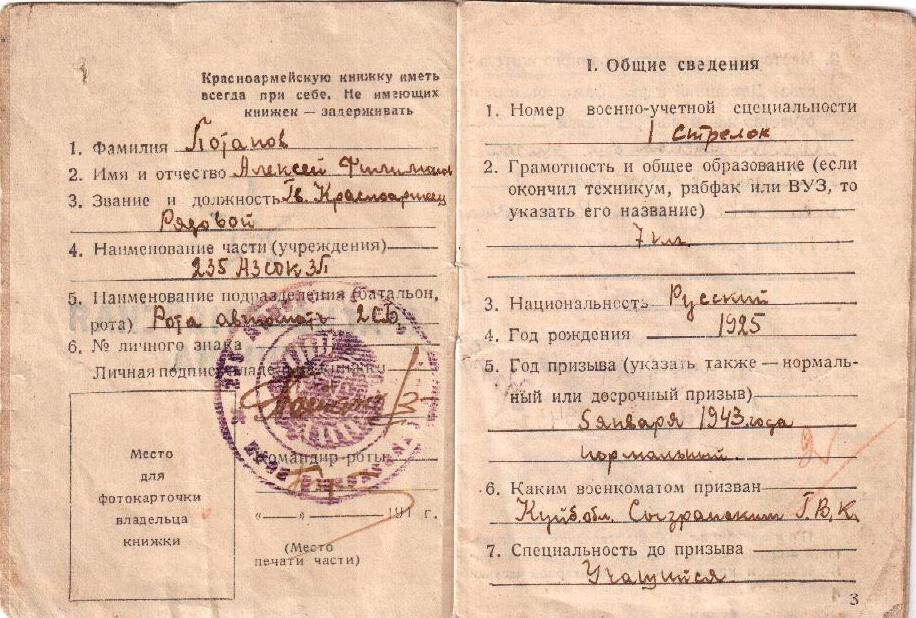 Красноармейскую книжку иметь
всегда при себе. Не имеющих
книжек — задерживать
1. Фамилия Потапов
2. Имя и отчество Алексей
3. Звание и должность Гв. Красноармеец
Рядовой
4. Наименование части (учреждения)
235 АЗСОК ЗП
5. Наименование подразделения (батальон,
рота) Рота автомат 2СБ.
6. № личного знака
Личная подпись владельца книжки
Командир роты
Место
для
фотокарточки
владельца
книжки
«—» 194 г.
(Место
печати части)
I. Общие сведения
1. Номер военно-учетной специальности
1 Стрелок
2. Грамотность и общее образование (если
окончил техникум, рабфак или ВУЗ, то
указать его название)
7 кл.
3. Национальность Русский
4. Год рождения 1925
5. Год призыва (указать также — нормаль-
ный или досрочный призыв)
5 января 1943 года
нормальный.
6. Каким военкоматом призван
Куйб. обл. Сызранским Г.В.К.
7. Специальность до призыва
Учащийся
3